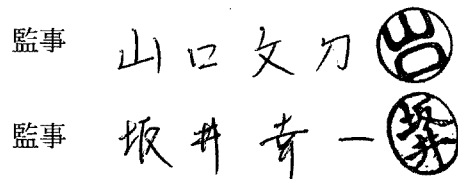 監事 山口文刀 山口
監事 坂井幸一 坂井